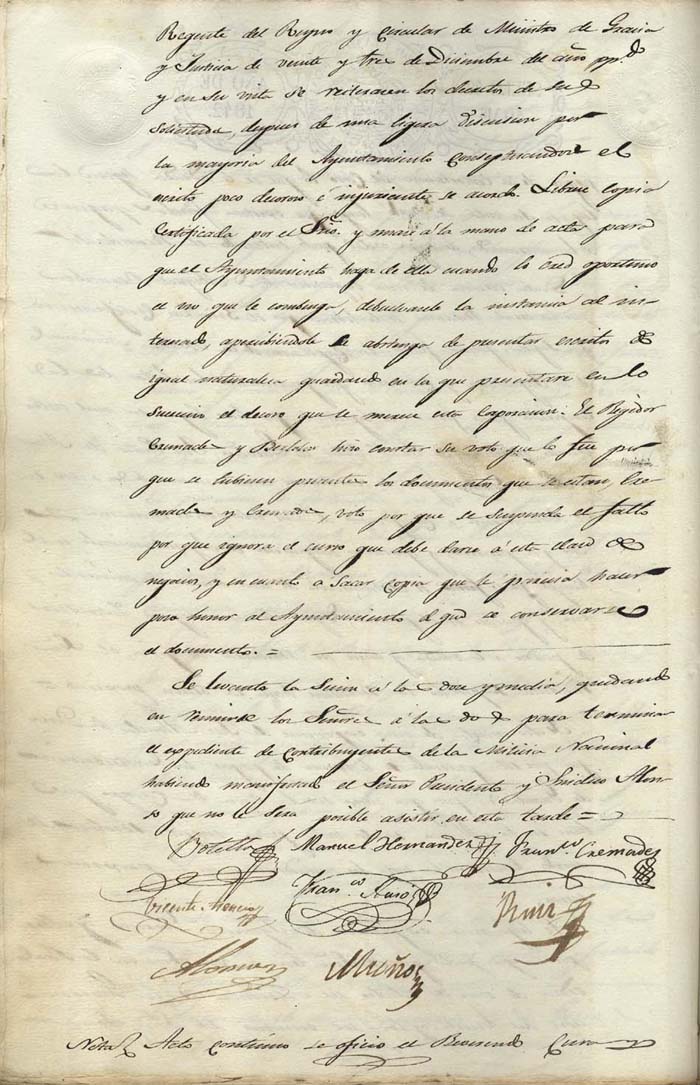 Regente del Reyno y Circular de Ministro de Gracia
y Justicia de veinte y tres de Diciembre del año pp.do
y en su vista se reiteraron los de su
solicitud, despues de una ligera discusion por
la mayoria del Ayuntamiento Conseptuandose el
escrito poco decoroso é injuriante se acordó. Librar copia
Certificada por el Srio. y á la mano de actas para
que el Ayuntamiento haga de ella cuando lo crea oportuno
el uso que le combenga, debuelvasele la instancia al in-
teresado, apercibiendole se abstenga de presentar escritos de
igual naturaleza guardando en la que presentare en lo
sucesivo el decoro que le merece esta Corporacion. El Regidor
Cremades y hizo constar su voto que lo fue por
que se tubiesen presente los documentos que se citan, Cre-
mades y voto por que se suspenda el fallo
por que ignora el curso que debe darse á esta clase de
negocios, y en cuanto a Sacar Copia que le precisa hacer
poco honor al Ayuntamiento el que se conservare
el documento. =
Se levanto la Sesion á las doce y media, quedando
en reunirse los Señores á las dos para terminar
el expediente de contribuyentes de la Milicia Nacional
habiendo manifestado el Señor Presidente y Sindico Alon-
so que no le sera posible asistir en esta tarde =
Botella Manuel Hernandez Fran.co Cremades
Vicente Fran.co Ruiz
Alonso Muñoz
Nota Acto continuo se oficio el Reverendo Cura